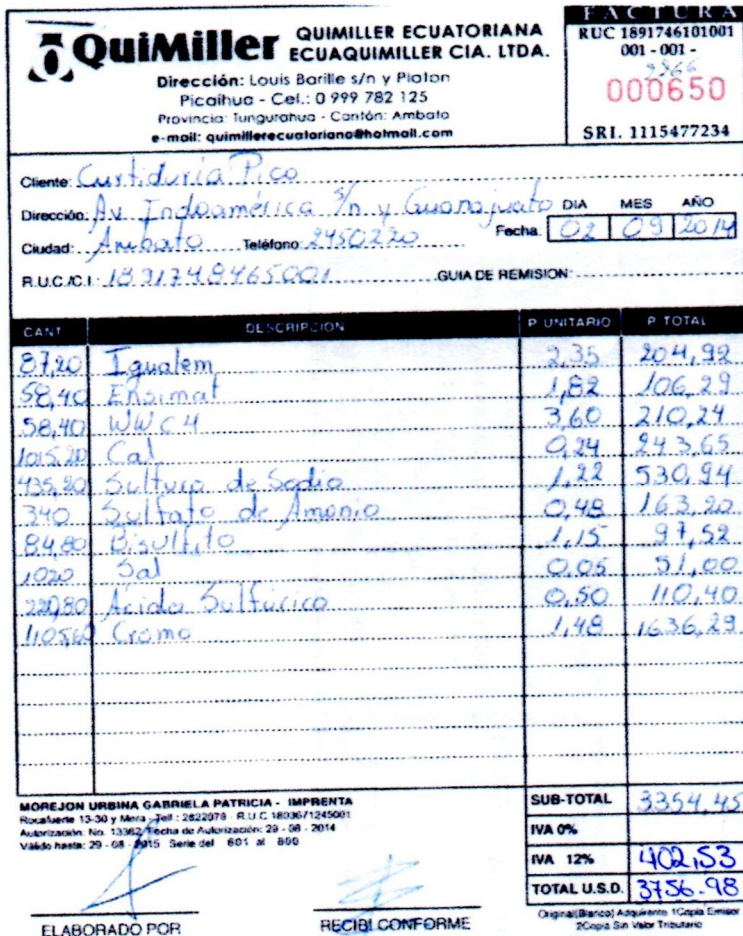 QuiMiller QUIMILLER ECUATORIANA
ECUAQUIMILLER CIA. LTDA.
Dirección: Louis Barille s/n y Platon
Picaihua - Cel.: 0 999 782 125
Provincia: Tungurahua - Cantón: Ambato
e-mail: quimillerecuatoriana@hotmail.com
FACTURA
RUC 1891746101001
001 - 001 -
000650
SRI. 1115477234
Cliente: Curtiduría Pico
Dirección: Av. Indoamérica s/n y Guanajuato
DIA MES AÑO
Ciudad: Ambato Teléfono: 2450220 Fecha: 02 09 2014
R.U.C./C.I.: 1891748465001 GUIA DE REMISION:
CANT. DESCRIPCION P. UNITARIO P. TOTAL
87,20 Igualem 2,35 204,92
58,40 Ensimat 1,82 106,29
58,40 WWC4 3,60 210,24
1015,20 Cal 0,24 243,65
435,20 Sulfuro de Sodio 1,22 530,94
340 Sulfato de Amonio 0,48 163,20
84,80 Bisulfito 1,15 97,52
1020 Sal 0,05 51,00
220,80 Ácido Sulfúrico 0,50 110,40
1105,60 Cromo 1,48 1636,29
MOREJON URBINA GABRIELA PATRICIA - IMPRENTA
Rocafuerte 13-30 y Mera - Telf.: 2822979 - R.U.C 1803671245001
Autorización: No. 13362 Fecha de Autorización: 29 - 08 - 2014
Válido hasta: 29 - 08 - 2015 Serie del 601 al 800
SUB-TOTAL 3354,45
IVA 0%
IVA 12% 402,53
TOTAL U.S.D. 3756.98
ELABORADO POR
RECIBI CONFORME
Original(Blanco) Adquirente 1Copia Emisor
2Copia Sin Valor Tributario